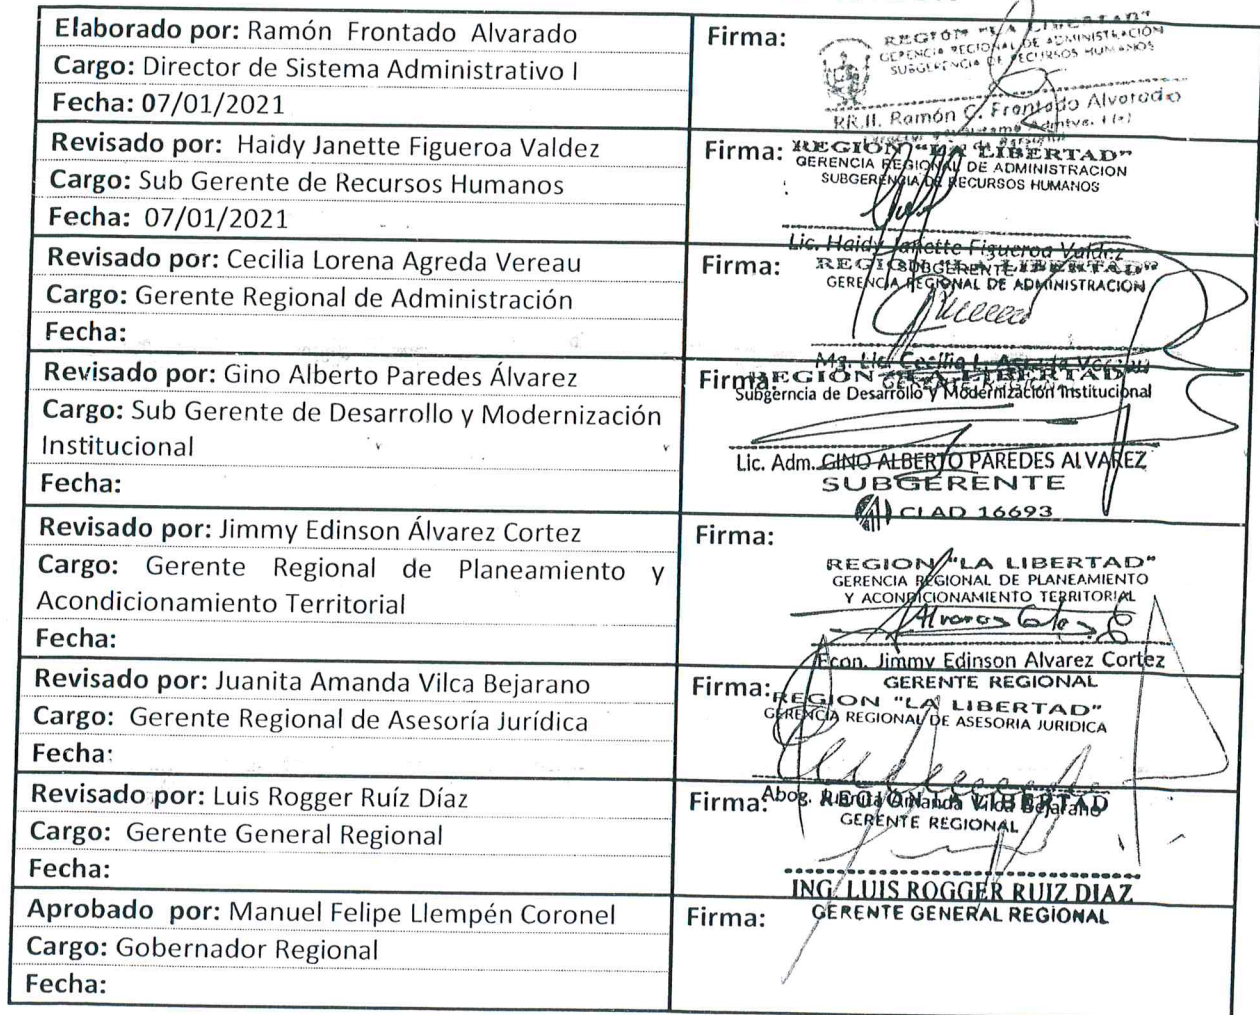 Elaborado por: Ramón Frontado Alvarado
Cargo: Director de Sistema Administrativo I
Fecha: 07/01/2021
Firma:
REGION "LA LIBERTAD"
GERENCIA REGIONAL DE ADMINISTRACIÓN
SUBGERENCIA DE RECURSOS HUMANOS
RR.II. Ramón C. Frontado Alvarado
Revisado por: Haidy Janette Figueroa Valdez
Cargo: Sub Gerente de Recursos Humanos
Fecha: 07/01/2021
Firma:
REGION "LA LIBERTAD"
GERENCIA REGIONAL DE ADMINISTRACION
SUBGERENCIA DE RECURSOS HUMANOS
Lic. Haidy Janette Figueroa Valdez
SUBGERENTE
Revisado por: Cecilia Lorena Agreda Vereau
Cargo: Gerente Regional de Administración
Fecha:
Firma:
REGION "LA LIBERTAD"
GERENCIA REGIONAL DE ADMINISTRACIÓN
Mg. Lic. Cecilia L. Agreda Vereau
GERENTE REGIONAL
Revisado por: Gino Alberto Paredes Álvarez
Cargo: Sub Gerente de Desarrollo y Modernización
Institucional
Fecha:
Firma:
REGION "LA LIBERTAD"
Subgerncia de Desarrollo y Modernización Institucional
Lic. Adm. GINO ALBERTO PAREDES ALVAREZ
SUBGERENTE
CLAD 16693
Revisado por: Jimmy Edinson Álvarez Cortez
Cargo: Gerente Regional de Planeamiento y
Acondicionamiento Territorial
Fecha:
Firma:
REGION "LA LIBERTAD"
GERENCIA REGIONAL DE PLANEAMIENTO
Y ACONDICIONAMIENTO TERRITORIAL
Econ. Jimmy Edinson Alvarez Cortez
GERENTE REGIONAL
Revisado por: Juanita Amanda Vilca Bejarano
Cargo: Gerente Regional de Asesoría Jurídica
Fecha:
Firma:
REGION "LA LIBERTAD"
GERENCIA REGIONAL DE ASESORIA JURIDICA
Abog. Juanita Amanda Vilca Bejarano
GERENTE REGIONAL
Revisado por: Luis Rogger Ruíz Díaz
Cargo: Gerente General Regional
Fecha:
Firma:
REGION LA LIBERTAD
ING. LUIS ROGGER RUIZ DIAZ
GERENTE GENERAL REGIONAL
Aprobado por: Manuel Felipe Llempén Coronel
Cargo: Gobernador Regional
Fecha:
Firma: